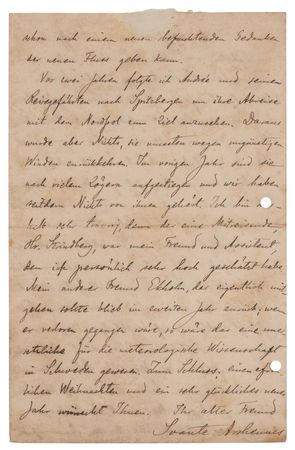 schon nach einem neuen befruchtenden Gedanken
der neuen Fluss geben kann.
Vor zwei Jahren folgte ich Andrée und seinen
Reisegefährten nach Spitzbergen um ihre Abreise
mit dem Nordpol zum Ziel anzusehen. Daraus
wurde aber Nichts, sie mussten wegen ungünstigen
Winden zurückkehren. Im vorigen Jahr sind sie
nach vielem Zögern aufgestiegen und wir haben
seitdem Nichts von ihnen gehört. Ich bin
sehr traurig, denn der eine Mitreisende,
Hr. Strindberg, war mein Freund und Assistent
den ich persönlich sehr hoch geschätzt habe.
Mein andrer Freund Ekholm, der eigentlich mit
gehen sollte blieb im zweiten Jahr zurück; wenn
er verloren gegangen wäre, so wäre das eine
für die meteorologische Wissenschaft
in Schweden gewesen. Zum Schluss, einen
lichen Weihnachten und ein sehr glückliches neues
Jahr wünscht Ihnen. Ihr alter Freund
Svante Arrhenius